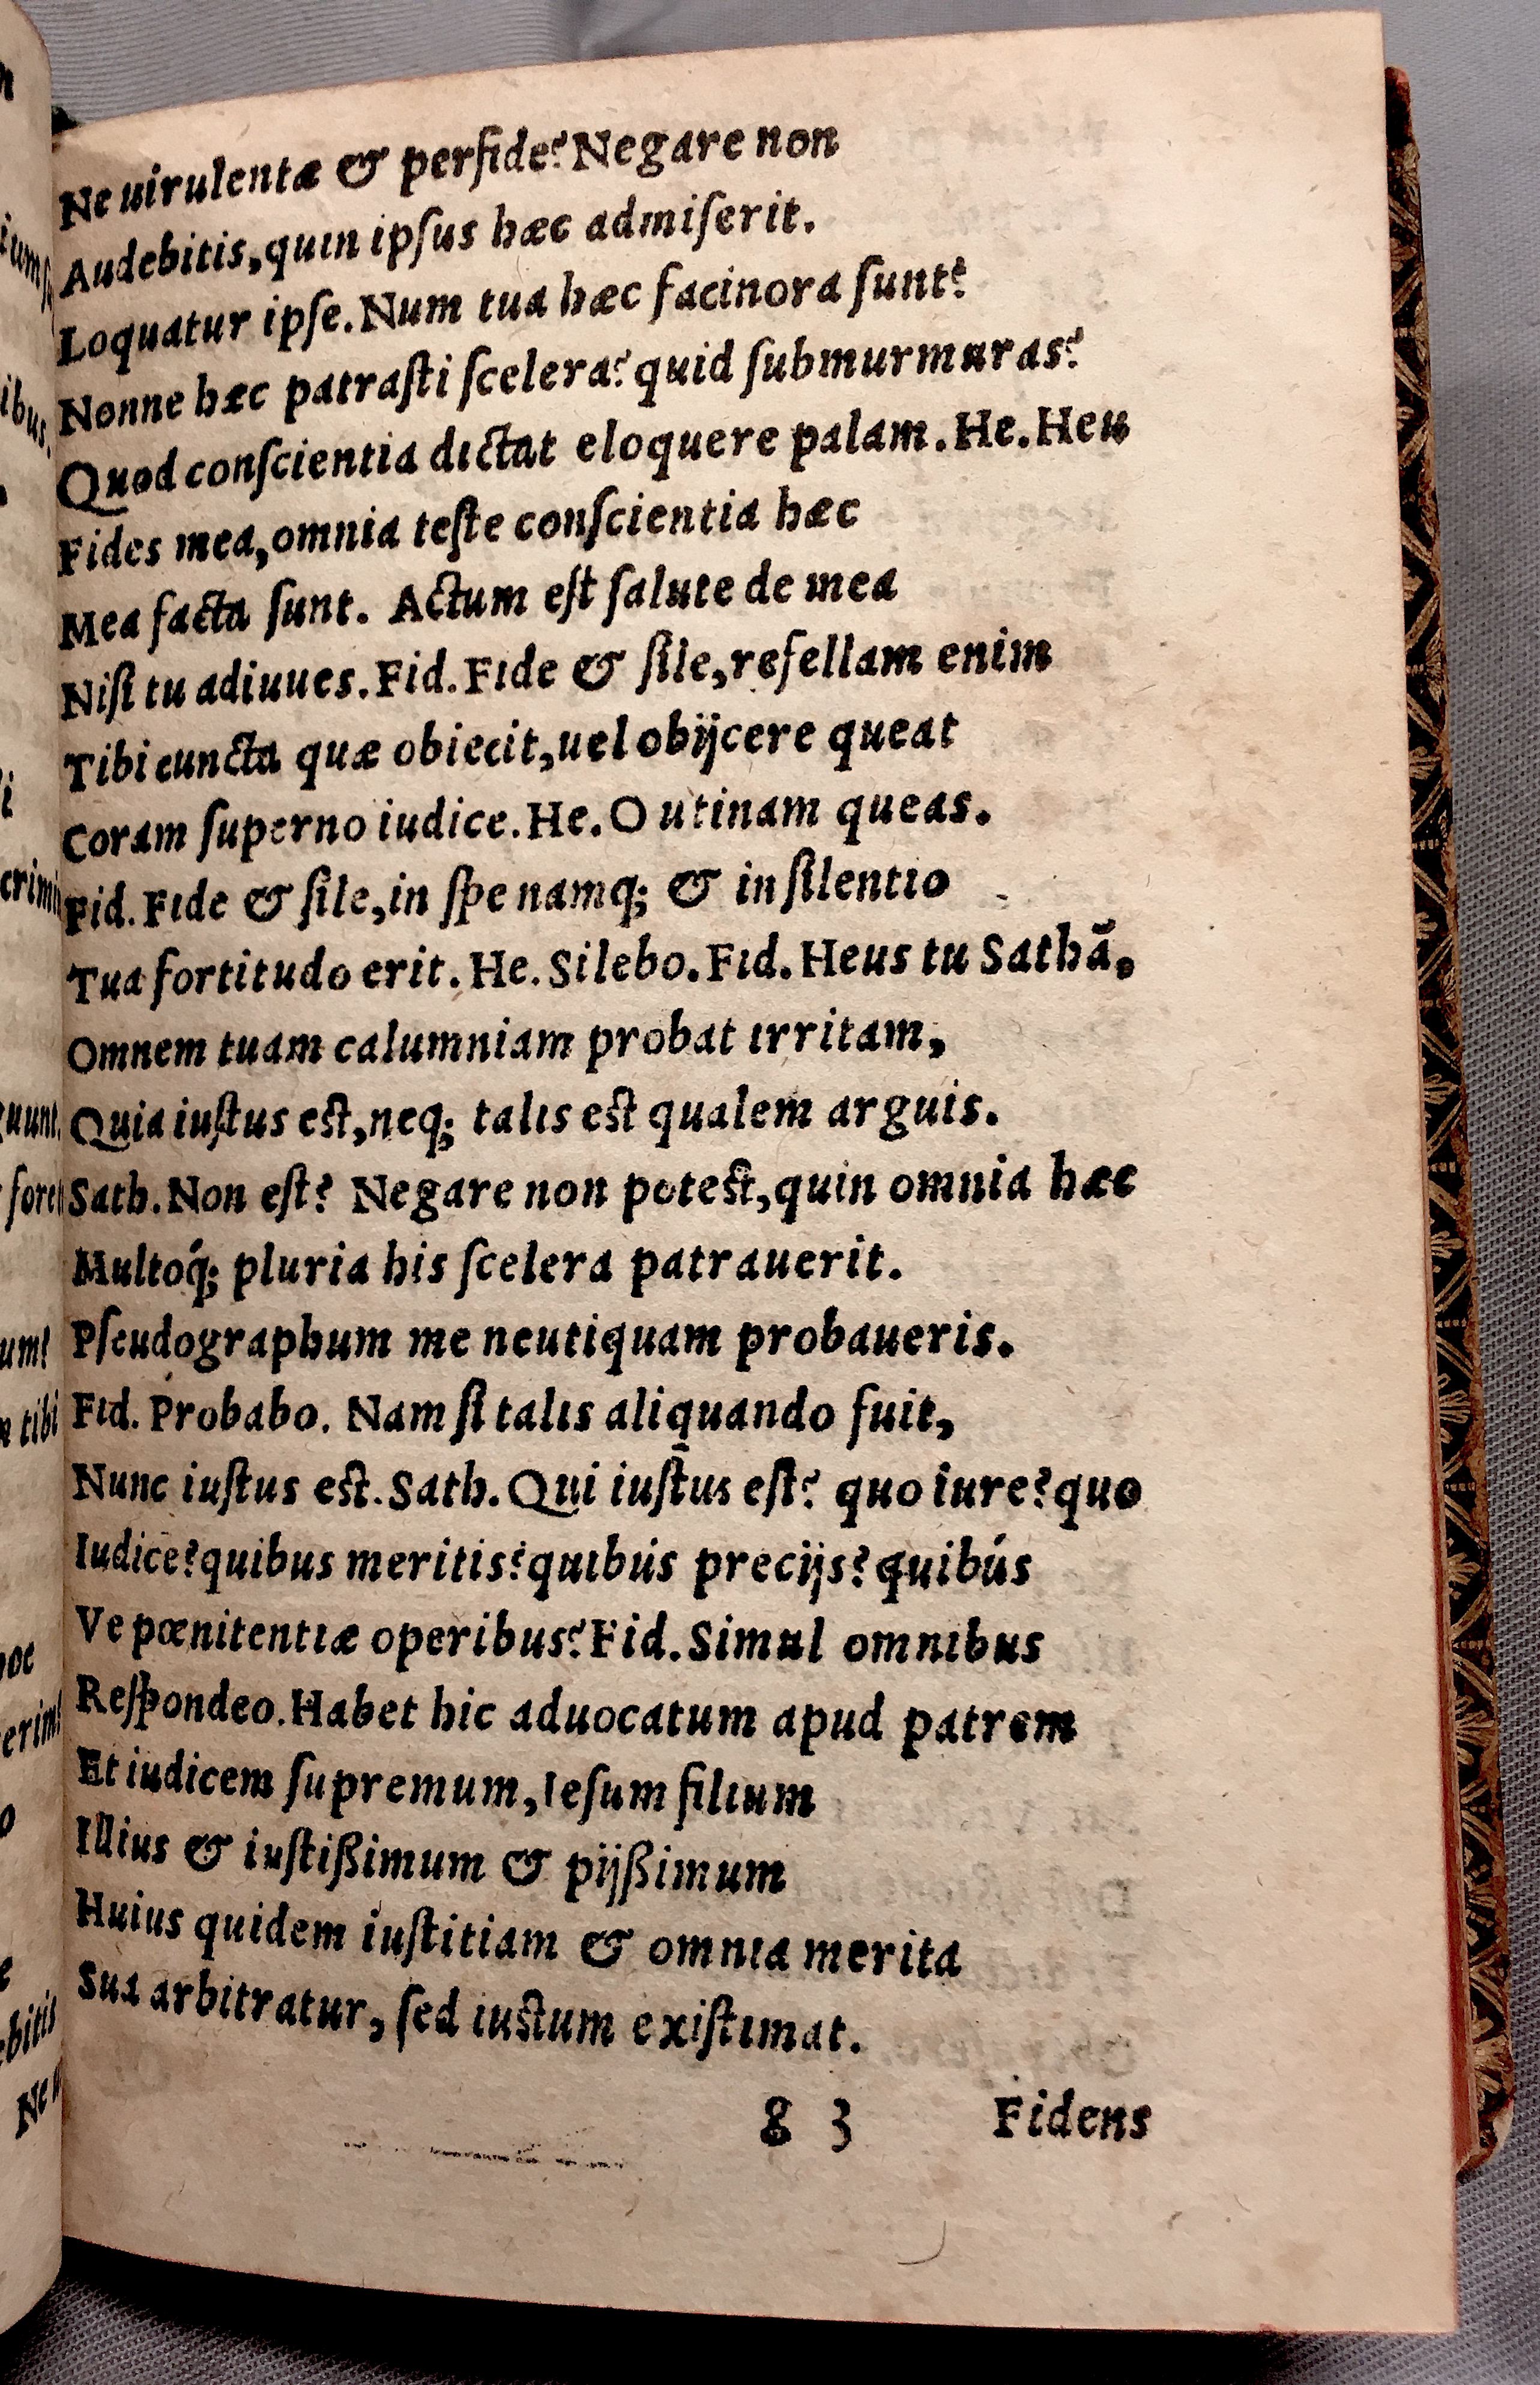 Ne uirulentæ & perfide? Negare non
Audebitis, quin ipſus hæc admiſerit.
Loquatur ipſe. Num tua hæc facinora ſunt?
Nonne hæc patraſti ſcelera? quid ſubmurmuras?
Quod conſcientia dictat eloquere palam. He. Heu
Fides mea, omnia teſte conſcientia hæc
Mea facta ſunt. Actum eſt ſalute de mea
Niſi tu adiuues. Fid. Fide & ſile, refellam enim
Tibi cuncta quæ obiecit, uel obijcere queat
Coram ſuperno iudice. He. O utinam queas.
Fid. Fide & ſile, in ſpe namq; & in ſilentio
Tua fortitudo erit. He. Silebo. Fid. Heus tu Sathã,
Omnem tuam calumniam probat irritam,
Quia iuſtus eſt, neq; talis eſt qualem arguis.
Sath. Non eſt? Negare non poteſt, quin omnia hæc
Multoq́; pluria his ſcelera patrauerit.
Pſeudographum me neutiquam probaueris.
Fid. Probabo. Nam ſi talis aliquando fuit,
Nunc iuſtus eſt. Sath. Qui iuſtus eſt? quo iure? quo
Iudice? quibus meritis? quibús precijs? quibús
Ve pœnitentiæ operibus? Fid. Simul omnibus
Reſpondeo. Habet hic aduocatum apud patrem
Et iudicem ſupremum, Ieſum filium
Illius & iuſtißimum & pijßimum
Huius quidem iuſtitiam & omnia merita
Sua arbitratur, ſed iuſtum exiſtimat.
g 3 Fidens